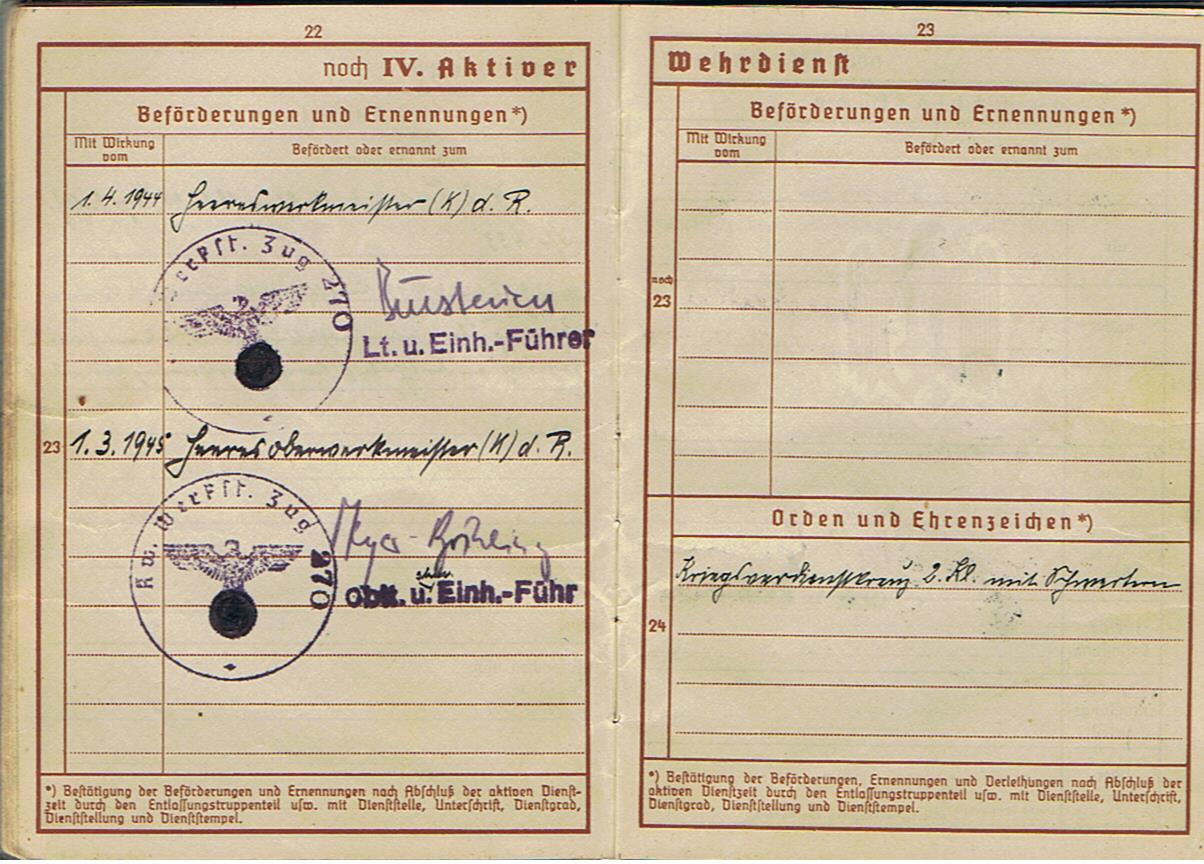 22
noch IV. Aktiver
Beförderungen und Ernennungen*)
Mit Wirkung vom
Befördert oder ernannt zum
1. 4. 1944 Heereswerkmeister (K) d. R.
Werkst. Zug 270
Lt. u. Einh.-Führer
23
1. 3. 1945 Heeresoberwerkmeister (K) d. R.
Kw. Werkst. Zug 270
Oblt. u. Einh.-Führ
*) Bestätigung der Beförderungen und Ernennungen nach Abschluß der aktiven Dienst-
zeit durch den Entlassungstruppenteil usw. mit Dienststelle, Unterschrift, Dienstgrad,
Dienststellung und Dienststempel.
23
Wehrdienst
Beförderungen und Ernennungen*)
Mit Wirkung vom
Befördert oder ernannt zum
noch
23
Orden und Ehrenzeichen*)
Kriegsverdienstkreuz 2. Kl. mit Schwertern
24
*) Bestätigung der Beförderungen, Ernennungen und Verleihungen nach Abschluß der
aktiven Dienstzeit durch den Entlassungstruppenteil usw. mit Dienststelle, Unterschrift,
Dienstgrad, Dienststellung und Dienststempel.